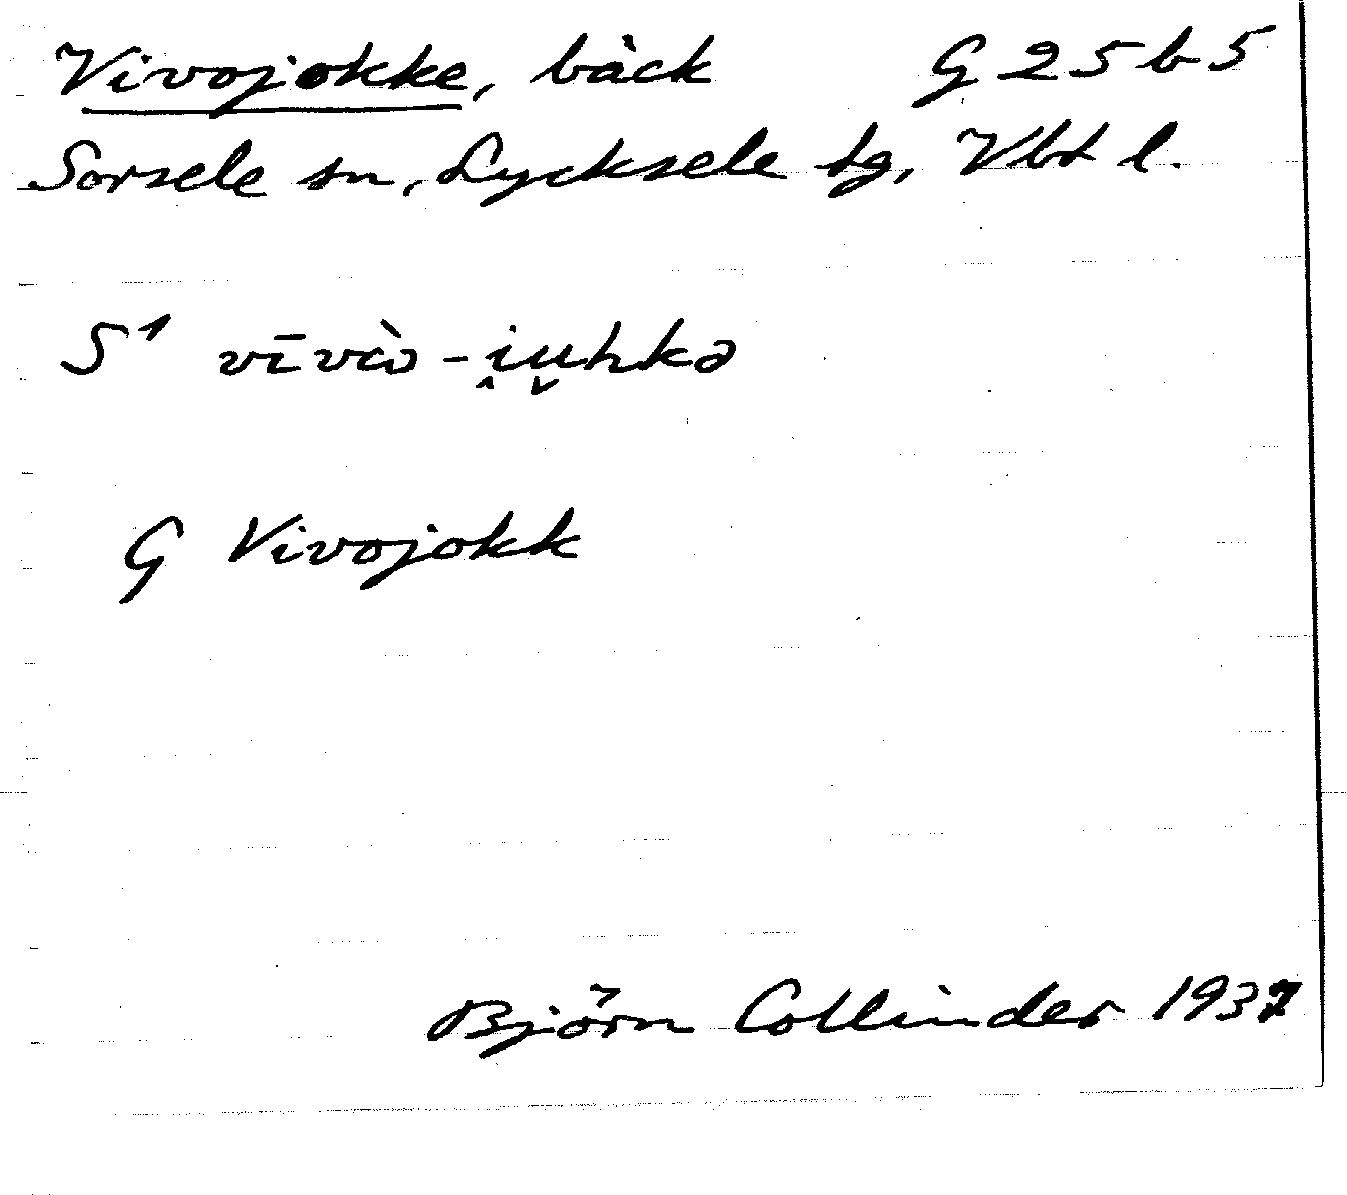 Vivojokke, bäck G 25 b 5
Sorsele sn, Lycksele tg, Vbt l.
S¹ vīvɑ̀-i̭u̬hkə
G Vivojokk
Björn Collinder 1937